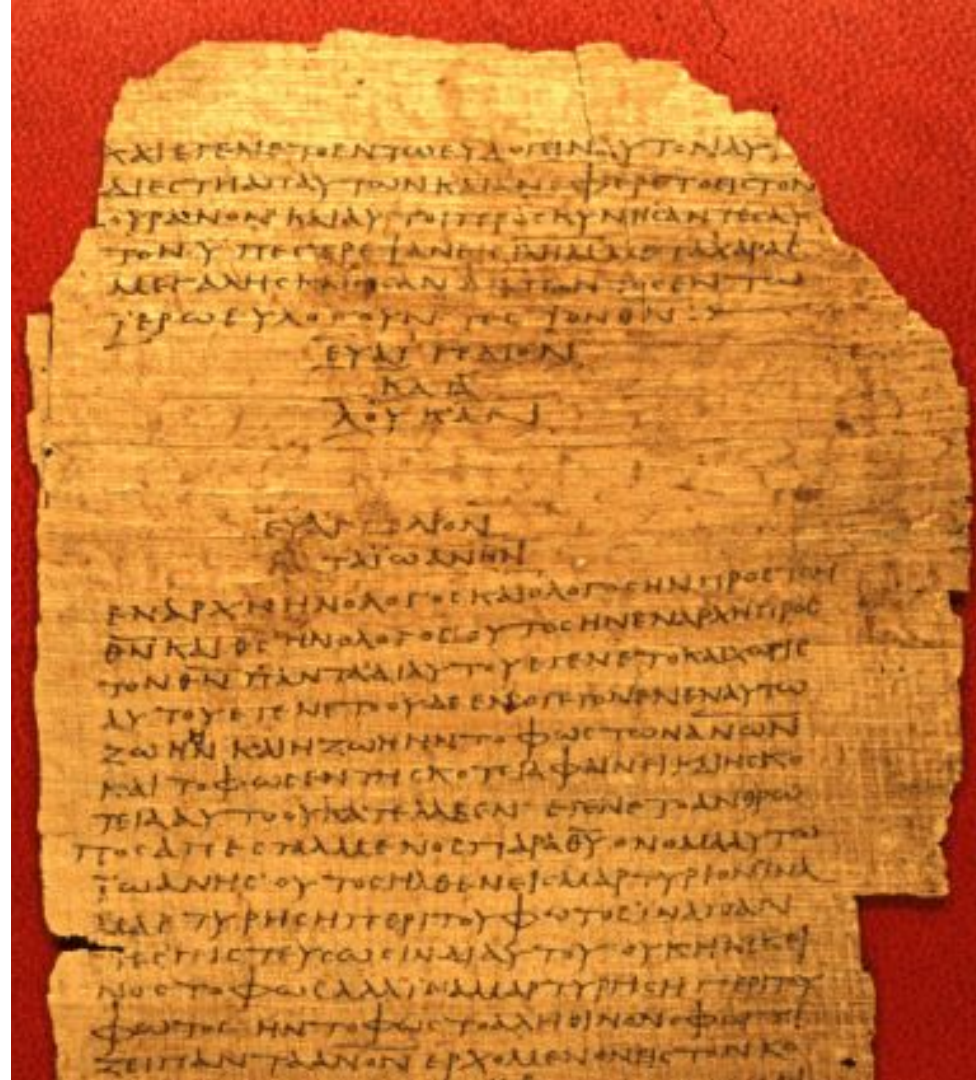 ΚΑΙΕΓΕΝΕΤΟΕΝΤΩΕΥΛΟΓΕΙΝΑΥΤΟΝΑΥ
ΔΙΕϹΤΗΑΠΑΥΤΩΝΚΑΙΑΝΕΦΕΡΕΤΟΕΙϹΤΟΝ
ΟΥΡΑΝΟΝ·ΚΑΙΑΥΤΟΙΠΡΟϹΚΥΝΗϹΑΝΤΕϹΑΥ
ΤΟΝΥΠΕϹΤΡΕΨΑΝΕΙϹΙΛΗΜΜΕΤΑΧΑΡΑϹ
ΜΕΓΑΛΗϹΚΑΙΗϹΑΝΔΙΑΠΑΝΤΟϹΕΝΤΩ
ΪΕΡΩΕΥΛΟΓΟΥΝΤΕϹΤΟΝΘ̅Ν̅:
ΕΥΑΓΓΕΛΙΟΝ
ΚΑΤΑ
ΛΟΥΚΑΝ
ΕΥΑΓΓΕΛΙΟΝ
ΚΑΤΑΪΩΑΝΗΝ
ΕΝΑΡΧΗΗΝΟΛΟΓΟϹΚΑΙΟΛΟΓΟϹΗΝΠΡΟϹΤΟΝ
Θ̅Ν̅ΚΑΙΘ̅Ϲ̅ΗΝΟΛΟΓΟϹΟΥΤΟϹΗΝΕΝΑΡΧΗΠΡΟϹ
ΤΟΝΘ̅Ν̅ΠΑΝΤΑΔΙΑΥΤΟΥΕΓΕΝΕΤΟΚΑΙΧΩΡΙϹ
ΑΥΤΟΥΕΓΕΝΕΤΟΟΥΔΕΕΝ·ΟΓΕΓΟΝΕΝΕΝΑΥΤΩ
ΖΩΗΗΝΚΑΙΗΖΩΗΗΝΤΟΦΩϹΤΩΝΑ̅Ν̅Ω̅Ν̅
ΚΑΙΤΟΦΩϹΕΝΤΗϹΚΟΤΕΙΑΦΑΙΝΕΙΚΑΙΗϹΚΟ
ΤΕΙΑΑΥΤΟΟΥΚΑΤΕΛΑΒΕΝ·ΕΓΕΝΕΤΟΑΝΘΡΩ
ΠΟϹΑΠΕϹΤΑΛΜΕΝΟϹΠΑΡΑΘ̅Υ̅ΟΝΟΜΑΑΥΤΩ
ΪΩΑΝΗϹ·ΟΥΤΟϹΗΛΘΕΝΕΙϹΜΑΡΤΥΡΙΟΝΪΝΑ
ΜΑΡΤΥΡΗϹΗΠΕΡΙΤΟΥΦΩΤΟϹΪΝΑΠΑΝ
ΤΕϹΠΙϹΤΕΥϹΩϹΙΝΔΙΑΥΤΟΥ·ΟΥΚΗΝΕΚΕΙ
ΝΟϹΤΟΦΩϹΑΛΛΙΝΑΜΑΡΤΥΡΗϹΗΠΕΡΙΤΟΥ
ΦΩΤΟϹ·ΗΝΤΟΦΩϹΤΟΑΛΗΘΙΝΟΝΟΦΩΤΙ
ΖΕΙΠΑΝΤΑΑ̅Ν̅Ο̅Ν̅ΕΡΧΟΜΕΝΟΝΕΙϹΤΟΝΚΟ